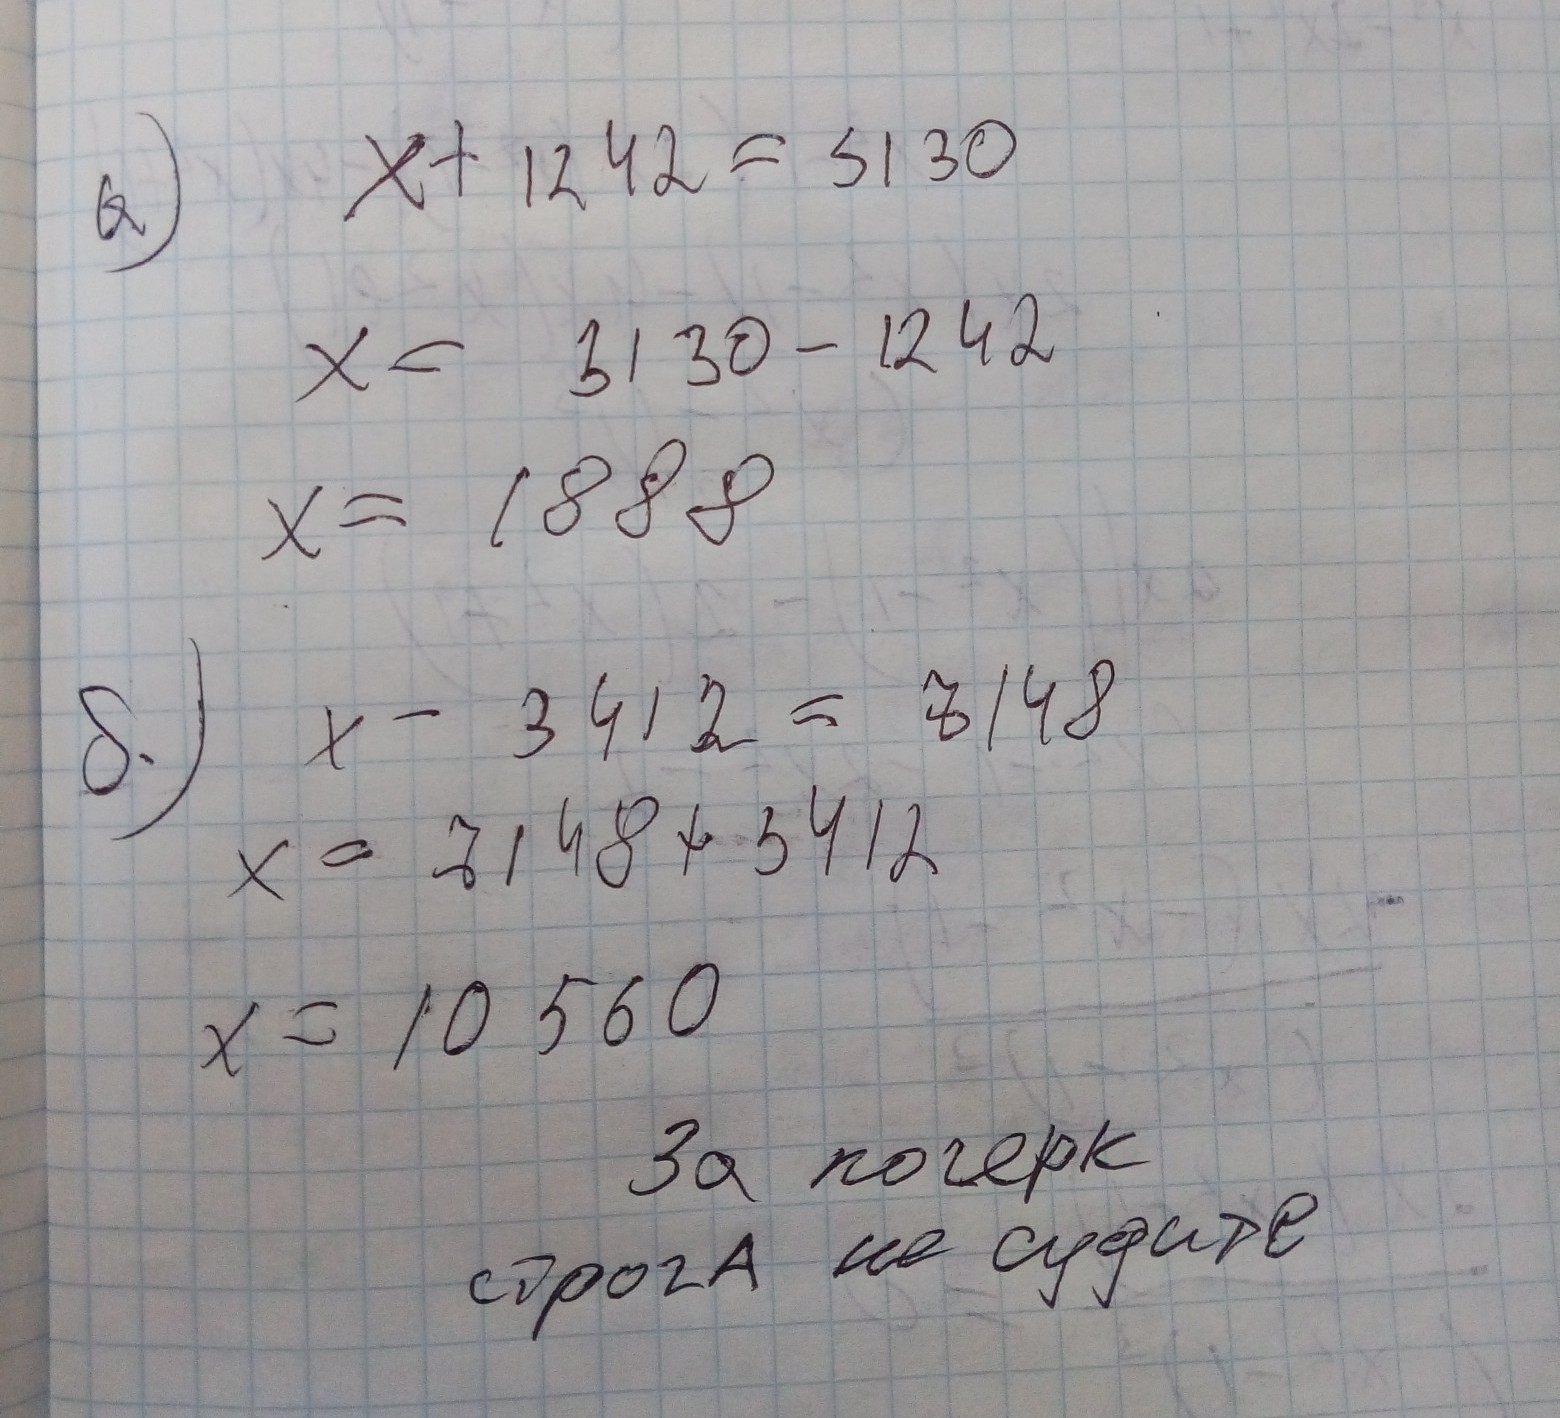 а) x + 1242 = 3130
x = 3130 - 1242
x = 1888
б.) x - 3412 = 7148
x = 7148 + 3412
x = 10 560
За почерк
строгА не судите